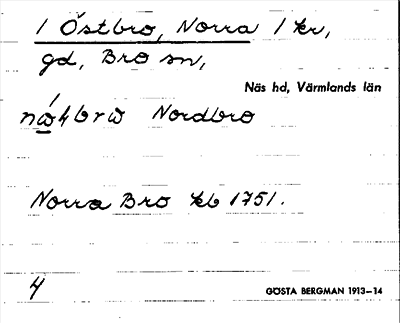 1 Östbro, Norra 1 kr,
gd, Bro sn,
Näs hd, Värmlands län
Nordbro
Norra Bro kb 1751.
4
GÖSTA BERGMAN 1913–14